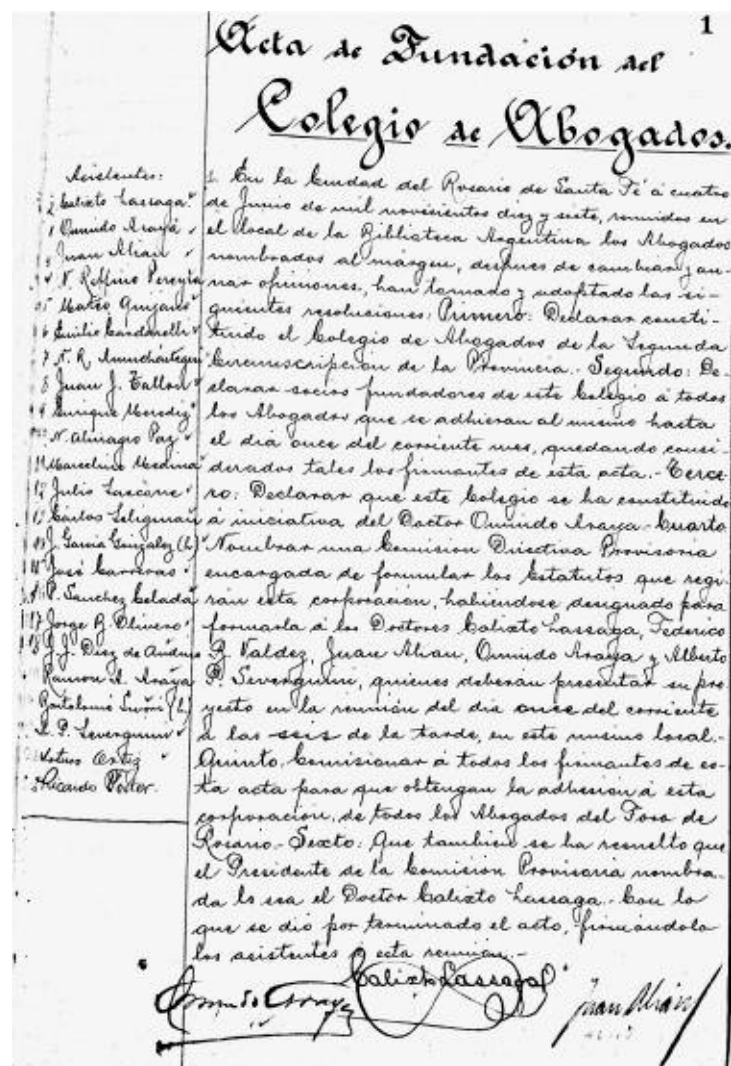 1
Acta de Fundación del
Colegio de Abogados.
Asistentes:
Calixto Lassaga
Osmundo Araya
Juan Alian
N. Rufino Pereyra
Mateo Quijano
Emilio Cardarelli
N. R. Amuchástegui
Juan J. Tallon
Enrique Merediz
N. Almagro Paz
Marcelino Medina
Julio Lascane
Carlos Seligman
J. Garcia Gonzalez (h)
José Carreras
P. Sanchez Celada
Jorge R. Olivero
J. J. Diez de Andino
Ramon A. Araya
Bartolomé (h)
A. P. Severgnini
Arturo Ortiz
Ricardo Foster.
En la Ciudad del Rosario de Santa Fé á cuatro
de Junio de mil novisientos diez y siete, reunidos en
el local de la Biblioteca Argentina los Abogados
nombrados al márgen, despues de cambiar y au-
nar opiniones, han tomado y adoptado las si-
guientes resoluciones: Primero: Declarar consti-
tuido el Colegio de Abogados de la Segunda
Circunscripcion de la Provincia.- Segundo: De-
clarar socios fundadores de este Colegio a todos
los Abogados que se adhieran al mismo hasta
el dia once del corriente mes, quedando consi-
derados tales los firmantes de esta acta.- Terce-
ro: Declarar que este Colegio se ha constituido
á iniciativa del Doctor Osmundo Araya.- Cuarto
Nombrar una Comision Directiva Provisoria
encargada de formular los Estatutos que regi-
rán esta corporación, habiendose designado para
formarla á los Doctores Calixto Lassaga, Federico
B. Valdez, Juan Alian, Osmundo Araya y Alberto
P. Severgnini, quienes deberan presentar su pro-
yecto en la reunión del dia once del corriente
á las seis de la tarde, en este mismo local.-
Quinto: Comisionar á todos los firmantes de es-
ta acta para que obtengan la adhesion á esta
corporación, de todos los Abogados del Foro de
Rosario.- Sexto: Que tambien se ha resuelto que
el Presidente de la Comision Provisoria nombra-
da lo sea el Doctor Calixto Lassaga.- Con lo
que se dió por terminado el acto, firmándola
los asistentes á esta reunión.-
Osmundo Araya
Calixto Lassaga
Juan Alian